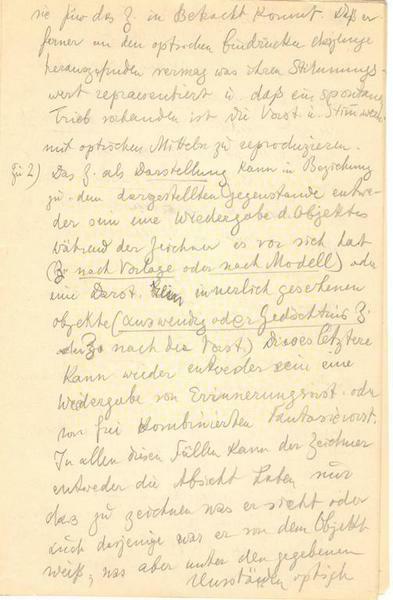 sie für das Z. in Betracht kommt. Daß er
ferner an den optischen Eindrücken dasjenige
herauszufinden vermag was ihren Stimmungs-
wert repraesentiert u. daß ein spontaner
Trieb vorhanden ist die Vorst. u. Stimm.
mit optischen Mitteln zu reproduzieren.
Zu 2) Das Z. als Darstellung kann in Beziehung
zu dem dargestellten Gegenstande entwe-
der sein eine Wiedergabe d. Objektes
während der Zeichner es vor sich hat
(Z. nach Vorlage oder nach Modell) oder
eine Darst. innerlich gesehenen
Objekte (auswendig oder Gedächtnis Z.
oder Z. nach der Vorst.) Dieses letztere
kann wieder entweder sein eine
Wiedergabe von Erinnerungsvorst. oder
von frei kombinierten Fantasievorst.
In allen diesen Fällen kann der Zeichner
entweder die Absicht haben nur
das zu zeichnen was er sieht oder
auch dasjenige was er von dem Objekt
weiß, was aber unter den gegebenen
Umständen optisch